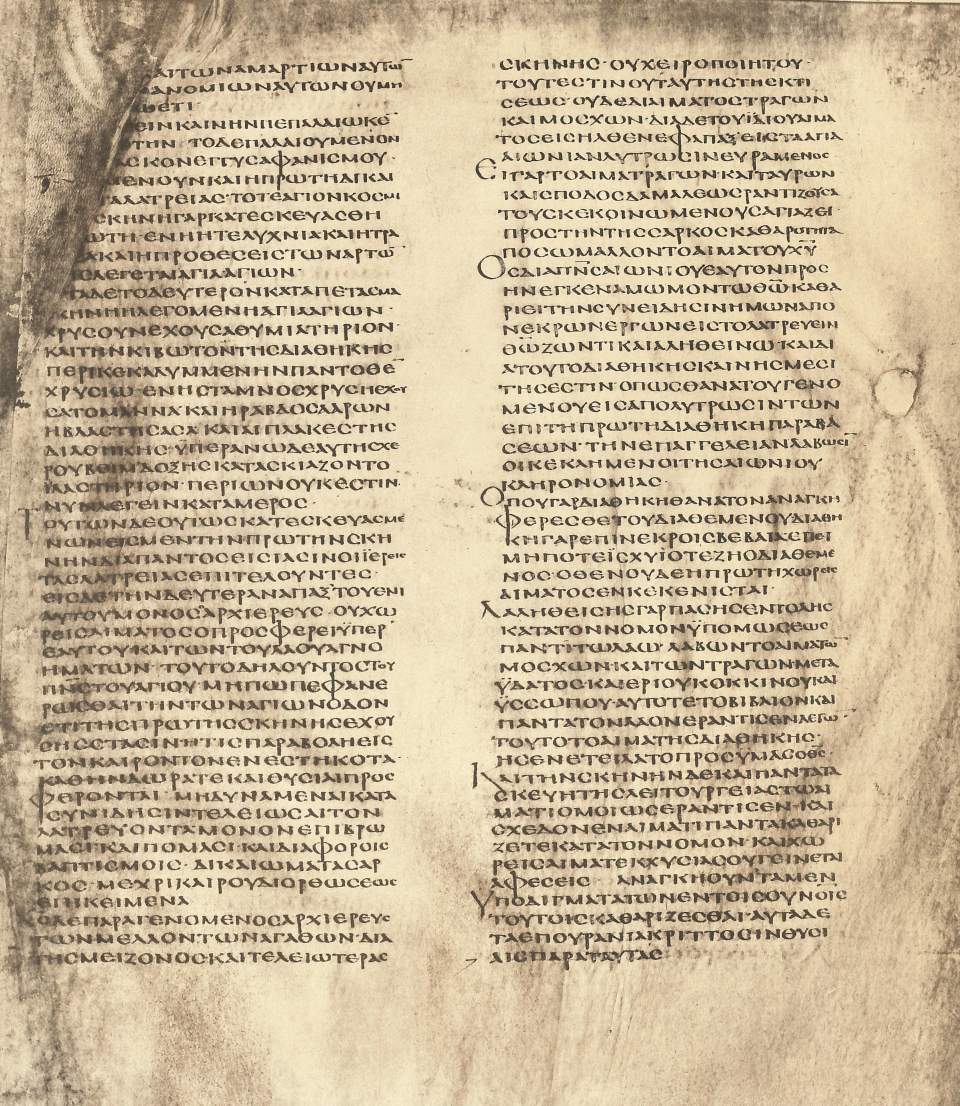 ΑΙΤΩΝΑΜΑΡΤΙΩΝΑΥΤΩ̅
ΑΝΟΜΙΩΝΑΥΤΩΝΟΥΜΗ
ΕΤΙ
ΕΙΝΚΑΙΝΗΝΠΕΠΑΛΑΙΩΚΕ
ΤΗΝ ΤΟΔΕΠΑΛΑΙΟΥΜΕΝΟΝ
ΑϹΚΟΝΕΓΓΥϹΑΦΑΝΙϹΜΟΥ·
ΕΝΟΥΝΚΑΙΗΠΡΩΤΗΔΙΚΑΙ
ΛΑΤΡΕΙΑϹ·ΤΟΤΕΑΓΙΟΝΚΟϹΜΙ
ϹΚΗΝΗΓΑΡΚΑΤΕϹΚΕΥΑϹΘΗ
ΩΤΗ·ΕΝΗΗΤΕΛΥΧΝΙΑΚΑΙΗΤΡΑ
ΑΚΑΙΗΠΡΟΘΕϹΕΙϹΤΩΝΑΡΤΩ̅
ΙϹΛΕΓΕΤΑΙΑΓΙΑΑΓΙΩΝ·
ΤΑΔΕΤΟΔΕΥΤΕΡΟΝΚΑΤΑΠΕΤΑϹΜΑ
ΚΗΝΗΗΛΕΓΟΜΕΝΗΑΓΙΑΑΓΙΩΝ·
ΧΡΥϹΟΥΝΕΧΟΥϹΑΘΥΜΙΑΤΗΡΙΟΝ·
ΚΑΙΤΗΝΚΙΒΩΤΟΝΤΗϹΔΙΑΘΗΚΗϹ
ΠΕΡΙΚΕΚΑΛΥΜΜΕΝΗΝΠΑΝΤΟΘΕ̅
ΧΡΥϹΙΩ·ΕΝΗϹΤΑΜΝΟϹΧΡΥϹΗΕΧΟΥ
ϹΑΤΟΜΑΝΝΑ·ΚΑΙΗΡΑΒΔΟϹΑΑΡΩΝ
ΗΒΛΑϹΤΗϹΑϹΑ·ΚΑΙΑΙΠΛΑΚΕϹΤΗϹ
ΔΙΑΘΗΚΗϹ·ΫΠΕΡΑΝΩΔΕΑΥΤΗϹΧΕ
ΡΟΥΒΕΙΜΔΟΞΗϹΚΑΤΑϹΚΙΑΖΟΝΤΟ
ΙΛΑϹΤΗΡΙΟΝ·ΠΕΡΙΩΝΟΥΚΕϹΤΙΝ
ΝΥΝΛΕΓΕΙΝΚΑΤΑΜΕΡΟϹ·
ΤΟΥΤΩΝΔΕΟΥΤΩϹΚΑΤΕϹΚΕΥΑϹΜΕ
ΝΩΝΕΙϹΜΕΝΤΗΝΠΡΩΤΗΝϹΚΗ
ΝΗΝΔΙΑΠΑΝΤΟϹΕΙϹΙΑϹΙΝΟΙΪΕΡΕΙϹ
ΤΑϹΛΑΤΡΕΙΑϹΕΠΙΤΕΛΟΥΝΤΕϹ·
ΕΙϹΔΕΤΗΝΔΕΥΤΕΡΑΝΑΠΑΞΤΟΥΕΝΙ
ΑΥΤΟΥΜΟΝΟϹΑΡΧΙΕΡΕΥϹ·ΟΥΧΩ
ΡΕΙϹΑΙΜΑΤΟϹΟΠΡΟϹΦΕΡΕΙΫΠΕΡ
ΕΑΥΤΟΥΚΑΙΤΩΝΤΟΥΛΑΟΥΑΓΝΟ
ΗΜΑΤΩΝ·ΤΟΥΤΟΔΗΛΟΥΝΤΟϹΤΟΥ
ΠΝ̅ϹΤΟΥΑΓΙΟΥ·ΜΗΠΩΠΕΦΑΝΕ
ΡΩϹΘΑΙΤΗΝΤΩΝΑΓΙΩΝΟΔΟΝ
ΕΤΙΤΗϹΠΡΩΤΗϹϹΚΗΝΗϹΕΧΟΥ
ϹΗϹϹΤΑϹΙΝ·ΗΤΙϹΠΑΡΑΒΟΛΗΕΙϹ
ΤΟΝΚΑΙΡΟΝΤΟΝΕΝΕϹΤΗΚΟΤΑ·
ΚΑΘΗΝΔΩΡΑΤΕΚΑΙΘΥϹΙΑΙΠΡΟϹ
ΦΕΡΟΝΤΑΙ·ΜΗΔΥΝΑΜΕΝΑΙΚΑΤΑ
ϹΥΝΙΔΗϹΙΝΤΕΛΕΙΩϹΑΙΤΟΝ
ΛΑΤΡΕΥΟΝΤΑΜΟΝΟΝΕΠΙΒΡΩ
ΜΑϹΙΚΑΙΠΟΜΑϹΙ·ΚΑΙΔΙΑΦΟΡΟΙϹ
ΒΑΠΤΙϹΜΟΙϹ·ΔΙΚΑΙΩΜΑΤΑϹΑΡ
ΚΟϹ·ΜΕΧΡΙΚΑΙΡΟΥΔΙΟΡΘΩϹΕΩϹ
ΕΠΙΚΕΙΜΕΝΑ
ΧϹΔΕΠΑΡΑΓΕΝΟΜΕΝΟϹΑΡΧΙΕΡΕΥϹ
ΤΩΝΜΕΛΛΟΝΤΩΝΑΓΑΘΩΝ·ΔΙΑ
ΤΗϹΜΕΙΖΟΝΟϹΚΑΙΤΕΛΕΙΩΤΕΡΑϹ
ϹΚΗΝΗϹ·ΟΥΧΕΙΡΟΠΟΙΗΤΟΥ·
ΤΟΥΤΕϹΤΙΝΟΥΤΑΥΤΗϹΤΗϹΚΤΙ
ϹΕΩϹ·ΟΥΔΕΔΙΑΙΜΑΤΟϹΤΡΑΓΩΝ
ΚΑΙΜΟϹΧΩΝ·ΔΙΑΔΕΤΟΥΪΔΙΟΥΑΙΜΑ
ΤΟϹΕΙϹΗΛΘΕΝΕΦΑΠΑΞΕΙϹΤΑΑΓΙΑ
ΑΙΩΝΙΑΝΛΥΤΡΩϹΙΝΕΥΡΑΜΕΝΟϹ
ΕΙΓΑΡΤΟΑΙΜΑΤΡΑΓΩΝΚΑΙΤΑΥΡΩΝ
ΚΑΙϹΠΟΔΟϹΔΑΜΑΛΕΩϹΡΑΝΤΙΖΟΥϹΑ
ΤΟΥϹΚΕΚΟΙΝΩΜΕΝΟΥϹΑΓΙΑΖΕΙ·
ΠΡΟϹΤΗΝΤΗϹϹΑΡΚΟϹΚΑΘΑΡΟΤΗΤΑ
ΠΟϹΩΜΑΛΛΟΝΤΟΑΙΜΑΤΟΥΧ̅Υ̅
ΟϹΔΙΑΠΝ̅ϹΑΙΩΝΙΟΥΕΑΥΤΟΝΠΡΟϹ
ΗΝΕΓΚΕΝΑΜΩΜΟΝΤΩΘ̅Ω̅ΚΑΘΑ
ΡΙΕΙΤΗΝϹΥΝΕΙΔΗϹΙΝΗΜΩΝΑΠΟ
ΝΕΚΡΩΝΕΡΓΩΝΕΙϹΤΟΛΑΤΡΕΥΕΙΝ
Θ̅Ω̅ΖΩΝΤΙΚΑΙΑΛΗΘΕΙΝΩ·ΚΑΙΔΙ
ΑΤΟΥΤΟΔΙΑΘΗΚΗϹΚΑΙΝΗϹΜΕϹΙ
ΤΗϹΕϹΤΙΝ·ΟΠΩϹΘΑΝΑΤΟΥΓΕΝΟ
ΜΕΝΟΥΕΙϹΑΠΟΛΥΤΡΩϹΙΝΤΩΝ
ΕΠΙΤΗΠΡΩΤΗΔΙΑΘΗΚΗΠΑΡΑΒΑ
ϹΕΩΝ·ΤΗΝΕΠΑΓΓΕΛΕΙΑΝΛΑΒΩϹΕΙ̅
ΟΙΚΕΚΛΗΜΕΝΟΙΤΗϹΑΙΩΝΙΟΥ
ΚΛΗΡΟΝΟΜΙΑϹ·
ΟΠΟΥΓΑΡΔΙΑΘΗΚΗΘΑΝΑΤΟΝΑΝΑΓΚΗ
ΦΕΡΕϹΘΕΤΟΥΔΙΑΘΕΜΕΝΟΥΔΙΑΘΗ
ΚΗΓΑΡΕΠΙΝΕΚΡΟΙϹΒΕΒΑΙΑΕΠΕΙ
ΜΗΠΟΤΕΪϹΧΥΪΟΤΕΖΗΟΔΙΑΘΕΜΕ
ΝΟϹ·ΟΘΕΝΟΥΔΕΗΠΡΩΤΗΧΩΡΕΙϹ
ΑΙΜΑΤΟϹΕΝΚΕΚΕΝΙϹΤΑΙ·
ΛΑΛΗΘΕΙϹΗϹΓΑΡΠΑϹΗϹΕΝΤΟΛΗϹ
ΚΑΤΑΤΟΝΝΟΜΟΝΫΠΟΜΩϹΕΩϹ
ΠΑΝΤΙΤΩΛΑΩ·ΛΑΒΩΝΤΟΑΙΜΑΤΩ̅
ΜΟϹΧΩΝ·ΚΑΙΤΩΝΤΡΑΓΩΝ·ΜΕΤΑ
ΫΔΑΤΟϹ·ΚΑΙΕΡΙΟΥΚΟΚΚΙΝΟΥΚΑΙ
ΫϹϹΩΠΟΥ·ΑΥΤΟΤΕΤΟΒΙΒΛΙΟΝΚΑΙ
ΠΑΝΤΑΤΟΝΛΑΟΝΕΡΑΝΤΙϹΕΝΛΕΓΩ̅
ΤΟΥΤΟΤΟΑΙΜΑΤΗϹΔΙΑΘΗΚΗϹ·
ΗϹΕΝΕΤΕΙΛΑΤΟΠΡΟϹΫΜΑϹΟΘϹ·
ΚΑΙΤΗΝϹΚΗΝΗΝΔΕΚΑΙΠΑΝΤΑΤΑ
ϹΚΕΥΗΤΗϹΛΕΙΤΟΥΡΓΕΙΑϹΤΩΑΙ
ΜΑΤΙΟΜΟΙΩϹΕΡΑΝΤΙϹΕΝ·ΚΑΙ
ϹΧΕΔΟΝΕΝΑΙΜΑΤΙΠΑΝΤΑΚΑΘΑΡΙ
ΖΕΤΕΚΑΤΑΤΟΝΝΟΜΟΝ·ΚΑΙΧΩ
ΡΕΙϹΑΙΜΑΤΕΚΧΥϹΙΑϹΟΥΓΕΙΝΕΤΑΙ
ΑΦΕϹΕΙϹ ΑΝΑΓΚΗΟΥΝΤΑΜΕΝ
ΥΠΟΔΙΓΜΑΤΑΤΩΝΕΝΤΟΙϹΟΥΝΟΙϹ
ΤΟΥΤΟΙϹΚΑΘΑΡΙΖΕϹΘΑΙ·ΑΥΤΑΔΕ
ΤΑΕΠΟΥΡΑΝΙΑΚΡΙΤΤΟϹΙΝΘΥϹΙ
ΑΙϹΠΑΡΑΤΑΥΤΑϹ